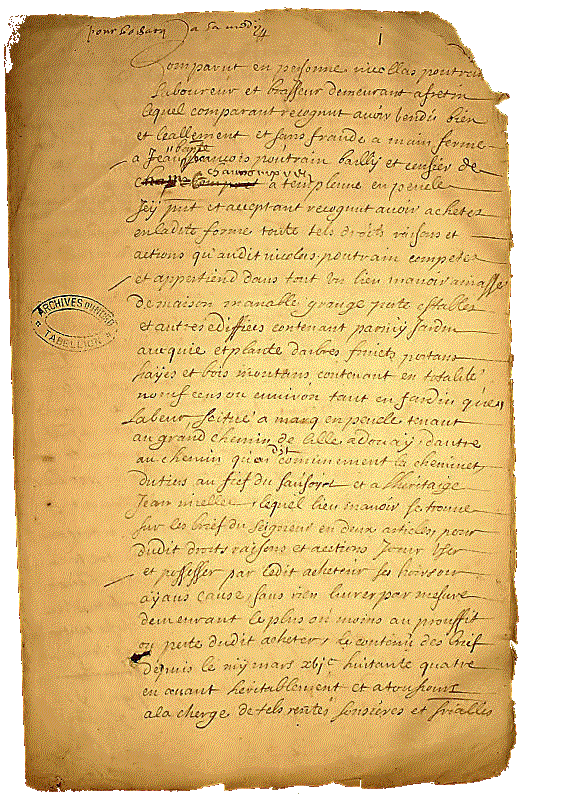 pour a sa modij
1
Comparut en personne nicollas poutrain
Laboureur et brasseur demeurant a fretin
lequel comparant recognut avoir vendu bien
et leallement et sans fraude a main ferme
a Jean françois poutrain bailly et censier de
a templeuve en pevele
Icÿ pnt et acceptant recognut avoir achetez
en ladite forme toute tels droits raisons et
actions qu'audit nicolas poutrain compete
et appertiend dans tout un lieu manoir amassé
de maison manable grange porte estables
et autres ediffices contenant parmÿ Jardin
et planté darbres fruicts portans
hayes et bois montans contenant en totalité
noeuf cens ou environ tant en Jardin que
Labeur, scitué a marcq en pevele tenant
au grand chemin de lille a douaÿ, dautre
au chemin qu'on dit communement la cheminet,
du tiers au fief du sansoist et a lheritaige
Jean miella, lequel lieu manoir se trouve
sur les brief du seigneur en deux articles, pour
dudit droits raisons et actions Jouir user
et possesser par ledit acheteur ses hoirs ou
aÿans cause, sans rien livrer par mesure
demeurant le plus ou moins au prouffit
ou perte dudit acheter, le contenu des brief
depuis le mars xvjc huitante quatre
en avant heritablement et a tousiours
a la cherge de tels rentes fonsieres et
ARCHIVES DU NORD
TABELLION